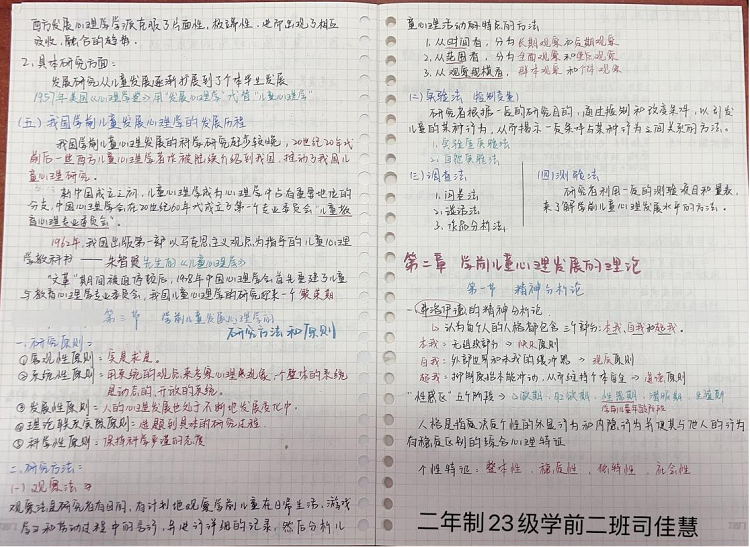 西方发展心理学学派克服了片面性，极端性，也即出现了相互
吸收，融合的趋势。
2.具体研究方面：
发展研究从儿童发展逐渐扩展到了个体毕生发展
1957年美国《心理学鉴》用"发展心理学"代替"儿童心理学"
(五)我国学前儿童发展心理学的发展历程
我国学前儿童发展的科学研究起步较晚，20世纪20年代
前后一些西方儿童心理学著作被陆续介绍到我国，推动了我国儿
童心理研究。
新中国成立之初，儿童心理学成为心理学中占有重要地位的
分支，中国心理学会在20世纪60年代成立了第一个专业委员会"儿童教
育心理专业委员会"
1962年，我国出版第一部以马克思主义观点为指导的儿童心理
学教科书——朱智贤先生的《儿童心理学》
"文革"期间被迫停顿后，1978年中国心理学会首先重建了儿童
与教育心理学专业委员会，我国儿童心理学的研究迎来一个繁荣期
第三节 学前儿童发展心理学的
研究方法和原则
一.研究原则：
①客观性原则：实事求是。
②系统性原则：用系统的观点来考察心理发展现象，个整体的系统
是动态的，开放的系统。
③发展性原则：人的心理发展也处于不断地发展变化中。
④理论联系实际原则：选题到具体的研究过程。
⑤科学性原则：保持科学审慎的态度
二.研究方法：
(一)观察法
观察法是研究者有目的，有计划地观察学前儿童在日常生活，游戏
学习和劳动过程中的言行，并进行详细的记录，然后分析儿
童心理活动和特点的方法
1.从时间看，分为长期观察和定期观察
2.从范围看，分为全面观察和重点观察
3.从观察规模看，群体观察和个体观察
(二)实验法 控制变量
研究者根据一定的研究目的，通过控制和改变条件，以引发
儿童的某种行为，从而揭示一定条件与某种行为之间关系的方法。
1.实验室实验法
2.自然实验法
(三)调查法
1.问卷法
2.谈话法
3.作品分析法
(四)测验法
研究者利用一定的测验项目和量表，
来了解学前儿童心理发展水平的方法。
第二章 学前儿童心理发展的理论
第一节 精神分析论
一.弗洛伊德的精神分析论
认为每个人的人格都包含三个部分：本我，自我和超我。
本我：无组织部分→快乐原则
自我：外部世界和本我的缓冲器→现实原则
超我：抑制原始本能冲动，从而维持个体自尊→道德原则
"性感区"五个阶段→口欲期，肛欲期，性器期，潜伏期，生殖期
学前儿童年龄阶段
人格是指能决定个性的外显行为和内隐行为并使其与他人的行为
有稳定区别的综合心理特征
个性特征：整体性，稳定性，独特性，社会性
二年制23级学前二班司佳慧